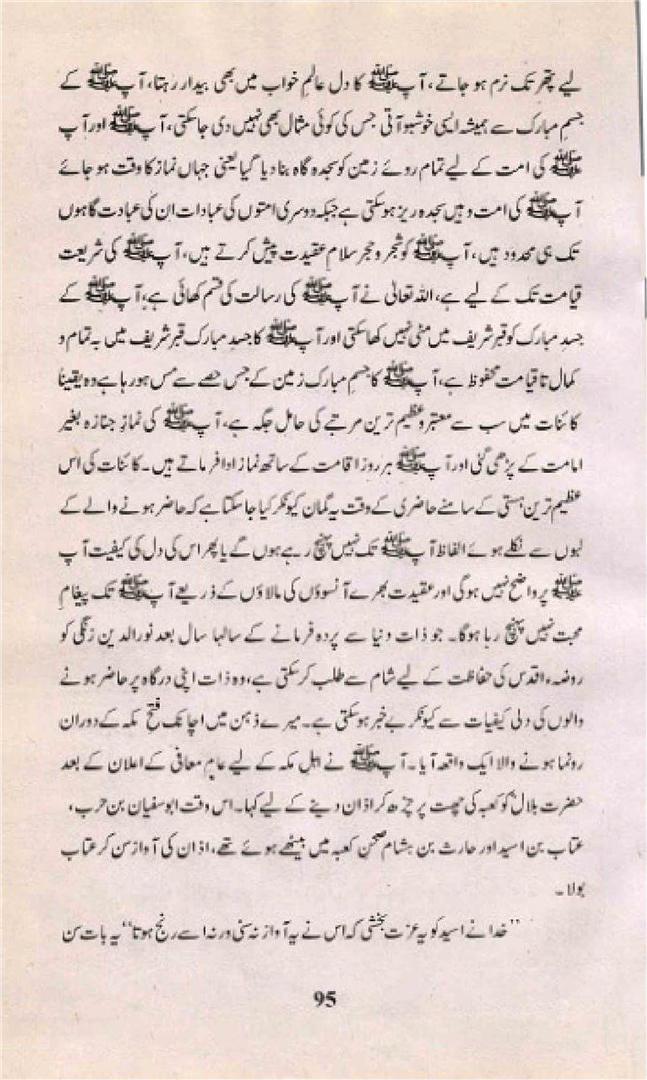 لیے پتھر تک نرم ہو جاتے، آپ ﷺ کا دل عالمِ خواب میں بھی بیدار رہتا، آپ ﷺ کے
جسمِ مبارک سے ہمیشہ ایسی خوشبو آتی جس کی کوئی مثال بھی نہیں دی جا سکتی، آپ ﷺ اور آپ
ﷺ کی امت کے لیے تمام روئے زمین کو سجدہ گاہ بنا دیا گیا یعنی جہاں نماز کا وقت ہو جائے
آپ ﷺ کی امت وہیں سجدہ ریز ہو سکتی ہے جبکہ دوسری امتوں کی عبادات ان کی عبادت گاہوں
تک ہی محدود ہیں، آپ ﷺ کو شجر و حجر سلامِ عقیدت پیش کرتے ہیں، آپ ﷺ کی شریعت
قیامت تک کے لیے ہے، اللہ تعالیٰ نے آپ ﷺ کی رسالت کی قسم کھائی ہے، آپ ﷺ کے
جسدِ مبارک کو قبر شریف میں مٹی نہیں کھا سکتی اور آپ ﷺ کا جسدِ مبارک قبر شریف میں بہ تمام و
کمال تا قیامت محفوظ ہے، آپ ﷺ کا جسمِ مبارک زمین کے جس حصے سے مس ہو رہا ہے وہ یقیناً
کائنات میں سب سے معتبر و عظیم ترین مرتبے کی حامل جگہ ہے، آپ ﷺ کی نمازِ جنازہ بغیر
امامت کے پڑھی گئی اور آپ ﷺ ہر روز اقامت کے ساتھ نماز ادا فرماتے ہیں۔ کائنات کی اس
عظیم ترین ہستی کے سامنے حاضری کے وقت یہ گمان کیونکر کیا جا سکتا ہے کہ حاضر ہونے والے کے
لبوں سے نکلے ہوئے الفاظ آپ ﷺ تک نہیں پہنچ رہے ہوں گے یا پھر اس کی دل کی کیفیت آپ
ﷺ پر واضح نہیں ہوگی اور عقیدت بھرے آنسوؤں کی مالاؤں کے ذریعے آپ ﷺ تک پیغامِ
محبت نہیں پہنچ رہا ہوگا۔ جو ذات دنیا سے پردہ فرمانے کے سالہا سال بعد نورالدین زنگی کو
روضہء اقدس کی حفاظت کے لیے شام سے طلب کر سکتی ہے، وہ ذات اپنی درگاہ پر حاضر ہونے
والوں کی دلی کیفیات سے کیونکر بے خبر ہو سکتی ہے۔ میرے ذہن میں اچانک فتح مکہ کے دوران
رونما ہونے والا ایک واقعہ آیا۔ آپ ﷺ نے اہل مکہ کے لیے عام معافی کے اعلان کے بعد
حضرت بلالؓ کو کعبہ کی چھت پر چڑھ کر اذان دینے کے لیے کہا۔ اس وقت ابوسفیان بن حرب،
عتاب بن اسید اور حارث بن ہشام صحنِ کعبہ میں بیٹھے ہوئے تھے، اذان کی آواز سن کر عتاب
بولا۔
’’خدا نے اسید کو یہ عزت بخشی کہ اس نے یہ آواز نہ سنی ورنہ اسے رنج ہوتا‘‘ یہ بات سن
95